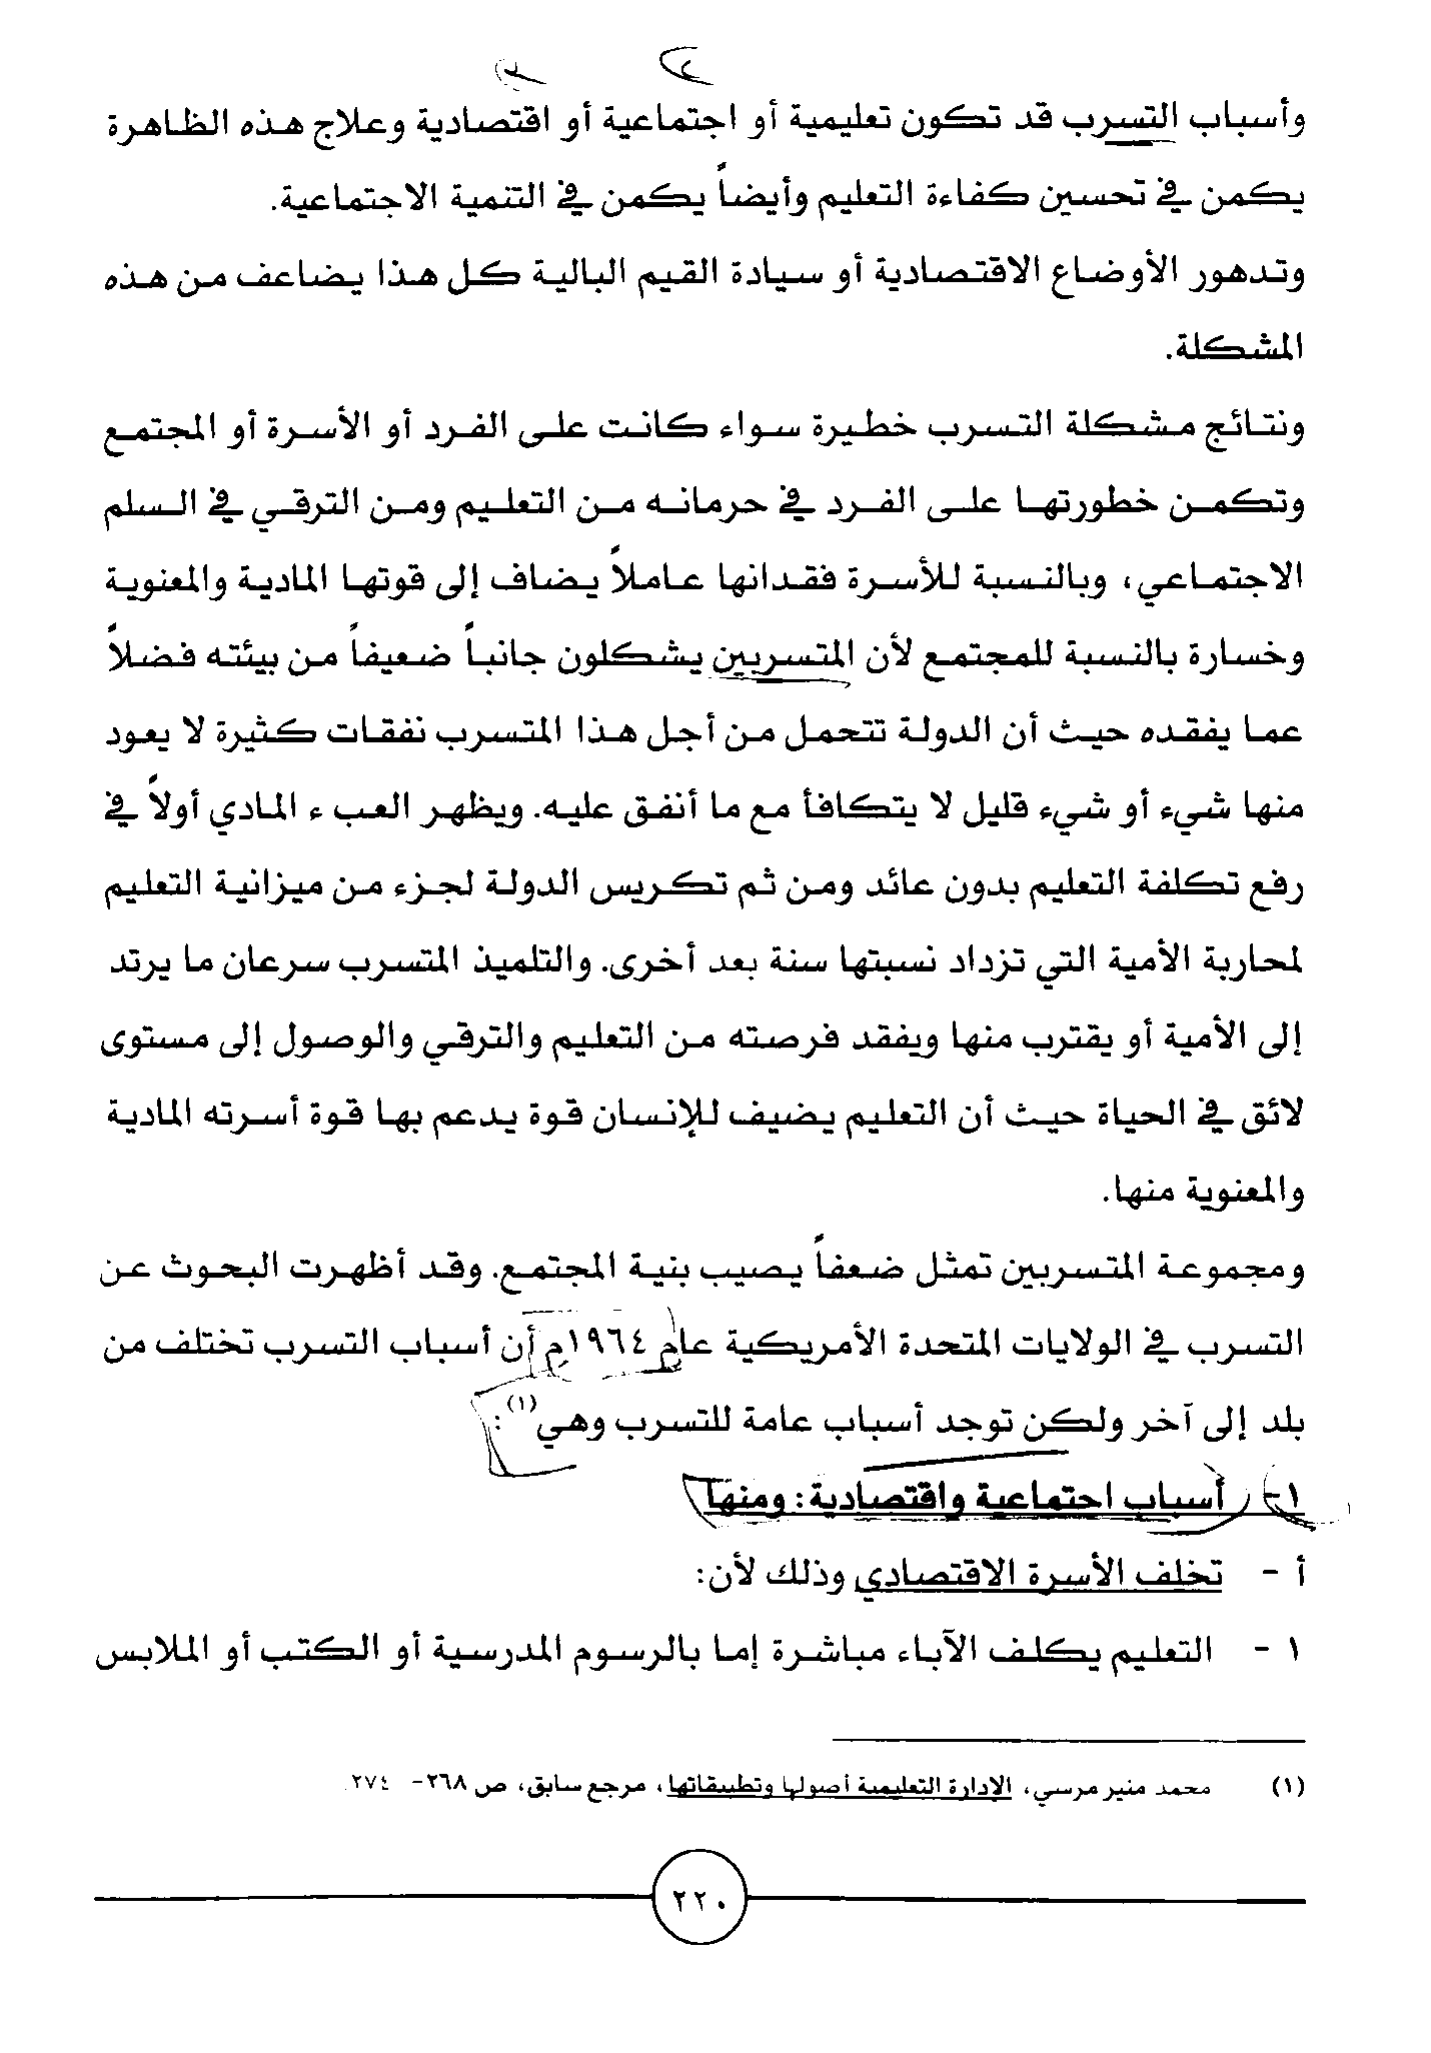 وأسباب التسرب قد تكون تعليمية أو اجتماعية أو اقتصادية وعلاج هذه الظاهرة
يكمن في تحسين كفاءة التعليم وأيضاً يكمن في التنمية الاجتماعية.
وتدهور الأوضاع الاقتصادية أو سيادة القيم البالية كل هذا يضاعف من هذه
المشكلة.
ونتائج مشكلة التسرب خطيرة سواء كانت على الفرد أو الأسرة أو المجتمع
وتكمن خطورتها على الفرد في حرمانه من التعليم ومن الترقي في السلم
الاجتماعي، وبالنسبة للأسرة فقدانها عاملاً يضاف إلى قوتها المادية والمعنوية
وخسارة بالنسبة للمجتمع لأن المتسربين يشكلون جانباً ضعيفاً من بيئته فضلاً
عما يفقده حيث أن الدولة تتحمل من أجل هذا المتسرب نفقات كثيرة لا يعود
منها شيء أو شيء قليل لا يتكافأ مع ما أنفق عليه. ويظهر العبء المادي أولاً في
رفع تكلفة التعليم بدون عائد ومن ثم تكريس الدولة لجزء من ميزانية التعليم
لمحاربة الأمية التي تزداد نسبتها سنة بعد أخرى. والتلميذ المتسرب سرعان ما يرتد
إلى الأمية أو يقترب منها ويفقد فرصته من التعليم والترقي والوصول إلى مستوى
لائق في الحياة حيث أن التعليم يضيف للإنسان قوة يدعم بها قوة أسرته المادية
والمعنوية منها.
ومجموعة المتسربين تمثل ضعفاً يصيب بنية المجتمع. وقد أظهرت البحوث عن
التسرب في الولايات المتحدة الأمريكية عام ١٩٦٤م أن أسباب التسرب تختلف من
بلد إلى آخر ولكن توجد أسباب عامة للتسرب وهي(١):
١- أسباب اجتماعية واقتصادية: ومنها
أ - تخلف الأسرة الاقتصادي وذلك لأن:
١ - التعليم يكلف الآباء مباشرة إما بالرسوم المدرسية أو الكتب أو الملابس
(١) محمد منير مرسي، الإدارة التعليمية أصولها وتطبيقاتها، مرجع سابق، ص ٢٦٨- ٢٧٤.
٢٢٠